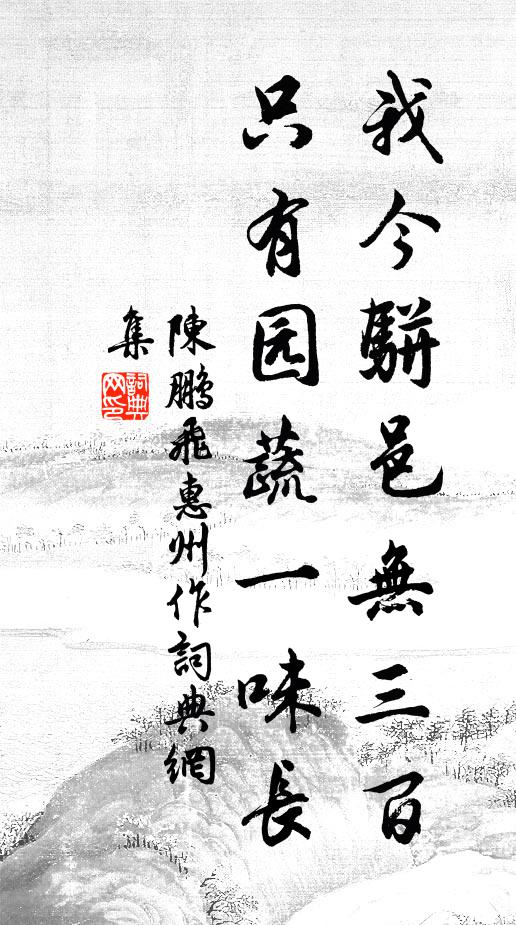 我今駢邑無三百
只有园蔬一味長
陳鵬飛惠州作詞典網
集
詞典
网印